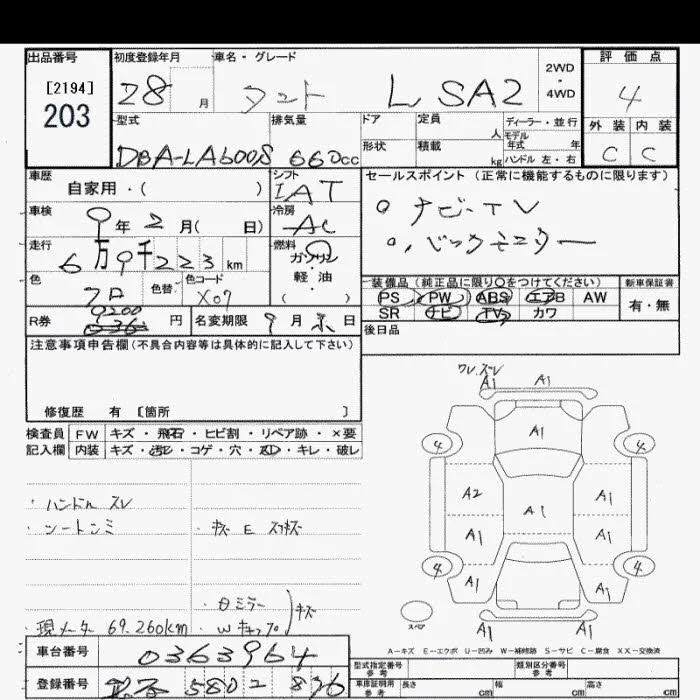 出品番号 初度登録年月 車名・グレード 2WD・4WD 評価点
[2194]
203 28 月 タント L SA2 4
型式 排気量 ドア 定員 人 ディーラー・並行 外装 内装
モデル年式 年
DBA-LA600S 660cc 形状 積載 kg ハンドル 左・右 C C
車歴 自家用・( ) シフト IAT セールスポイント(正常に機能するものに限ります)
車検 9年2月( 日) 冷房 AC ○ナビ・TV
走行 6万9千223km 燃料 ガソリン ○バックモニター
軽油
( )
色 クロ 色替 色コード X07 装備品(純正品に限り○をつけてください) 新車保証書
PS PW ABS エアB AW 有・無
SR ナビ TV カワ
R券 9200 円 名変期限 9月末日 後日品
注意事項申告欄(不具合内容等は具体的に記入して下さい)
修復歴 有 [箇所 ]
検査員 FW キズ・飛石・ヒビ割・リペア跡・×要
記入欄 内装 キズ・汚レ・コゲ・穴・・キレ・破レ
ワレ、ズレ
A1 A1
A1
4 4
A2 A1 A1
A1 A1
4 4
A1 A1
A1 A1
スペア
・ハンドル スレ
・シートシミ ・キズ E スリキズ
・θミラー
・現メーター 69.260km ・Wキャップ キズ
A-キズ E-エクボ U-凹み W-補修跡 S-サビ C-腐食 XX-交換済
車台番号 0363964 型式指定番号 参考 類別区分番号 参考
登録番号 580 2 836 車庫証明用 参考 長さ cm 幅 cm 高さ cm